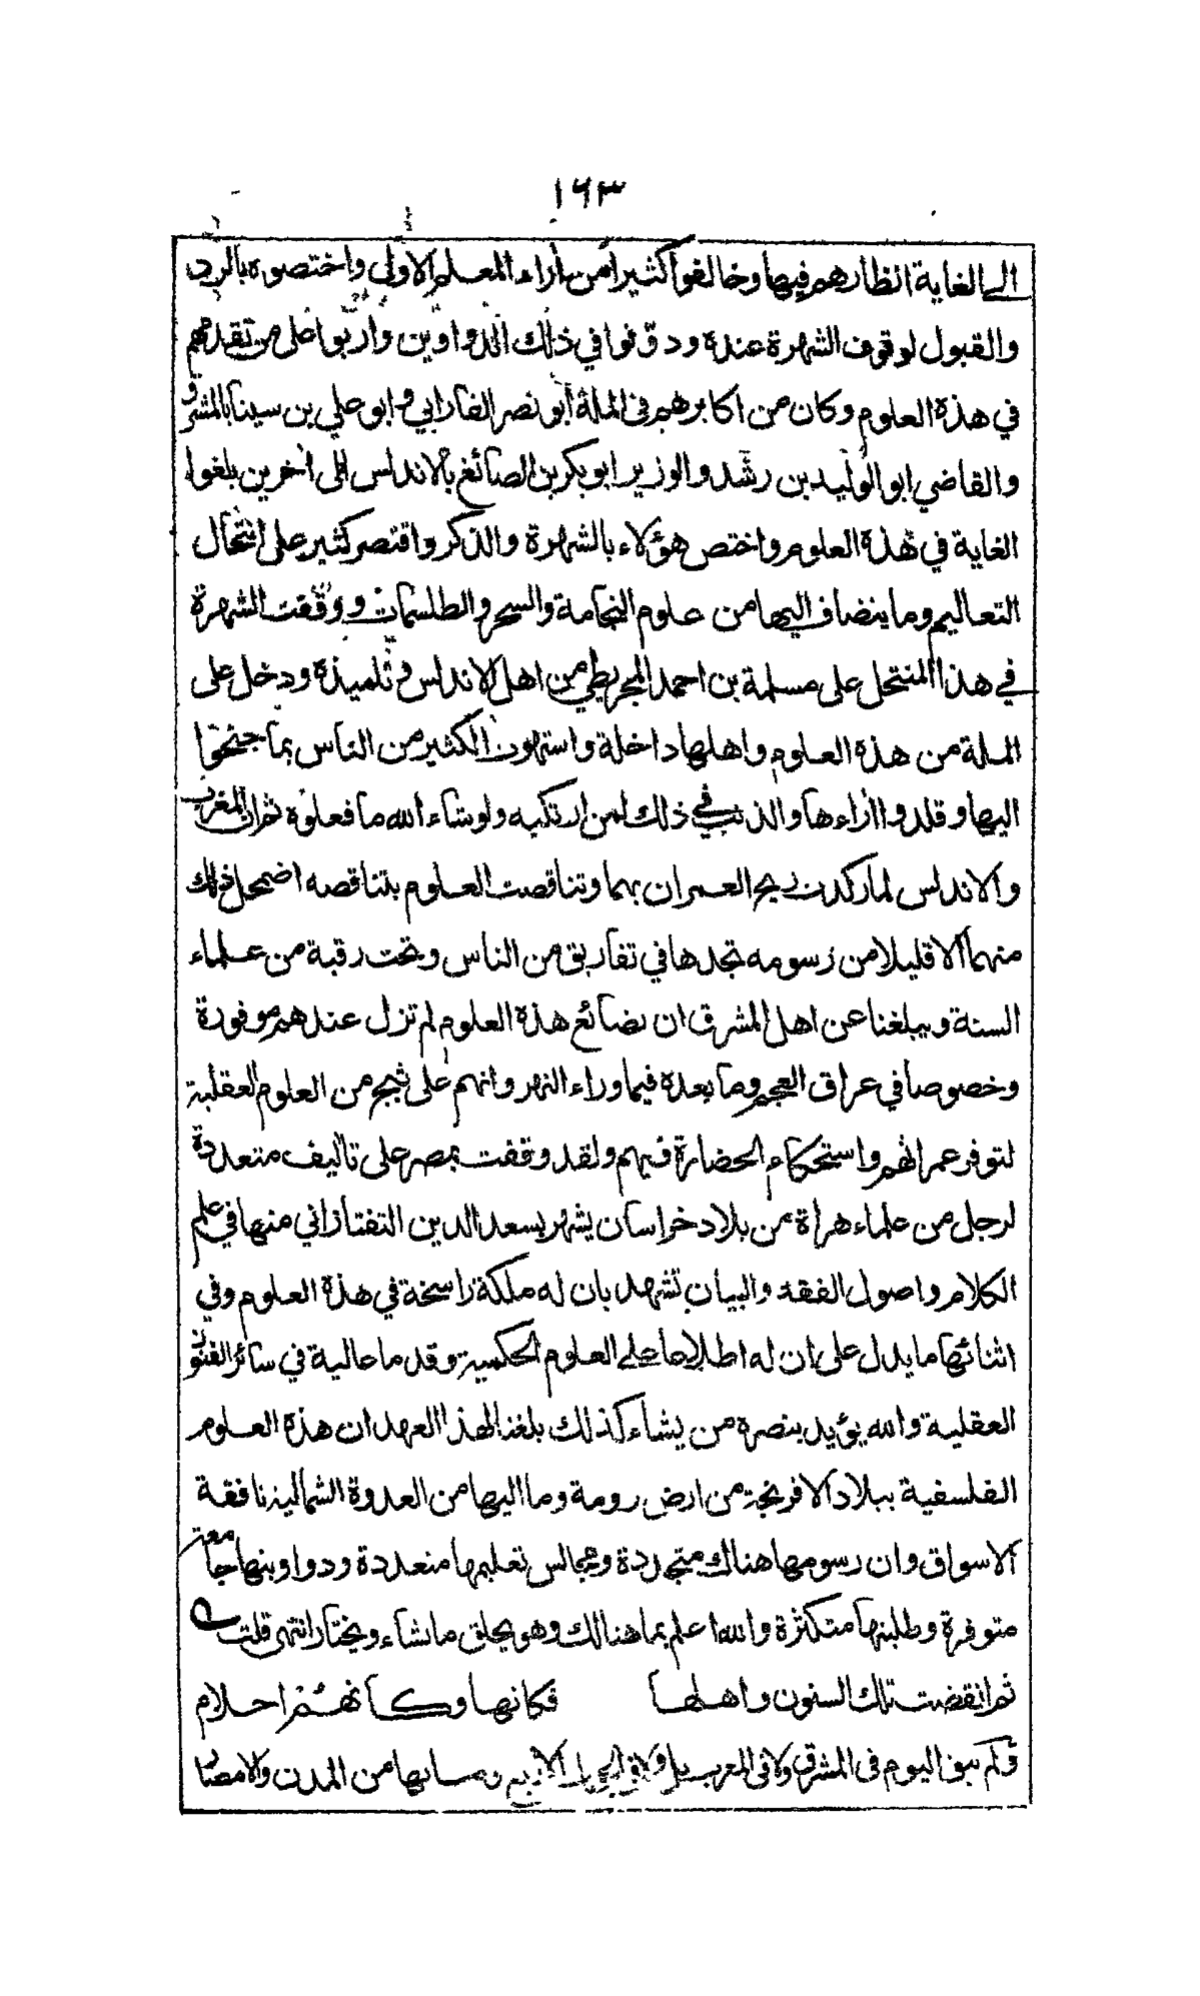 ١٦٣
الى الغاية انظارهم فيها وخالفوا كثيرا من اراء المعلم الاول واختصوه بالرد
والقبول لوقوف الشهرة عنده ودوّنوا في ذلك الدواوين واربوا على من تقدمهم
في هذه العلوم وكان من اكابرهم في الملة أبو نصر الفارابي وابو علي بن سينا بالمشرق
والقاضي ابو الوليد بن رشد والوزير ابو بكر بن الصائغ بالاندلس الى اخرين بلغوا
الغاية في هذه العلوم واختص هؤلاء بالشهرة والذكر واقتصر كثير على انتحال
التعاليم وما ينضاف اليها من علوم النجامة والسحر والطلسمات ووقفت الشهرة
في هذا المنتحل على مسلمة بن احمد المجريطي من اهل الاندلس وتلميذه ودخل على
الملة من هذه العلوم واهلها داخلة واستهوت الكثير من الناس بما جنحوا
اليها وقلدوا اراءها والذنب في ذلك لمن ارتكبه ولو شاء الله ما فعلوه ثم ان المغرب
والاندلس لما ركدت ريح العمران بهما وتناقصت العلوم بتناقصه اضمحل ذلك
منهما الا قليلا من رسومه تجدها في تفاريق من الناس وتحت رقبة من علماء
السنة ويبلغنا عن اهل المشرق ان بضائع هذه العلوم لم تزل عندهم موفورة
وخصوصا في عراق العجم وما بعده فيما وراء النهر وانهم على ثبج من العلوم العقلية
لتوفر عمرانهم واستحكام الحضارة فيهم ولقد وقفت بمصر على تاليف متعددة
لرجل من علماء هراة من بلاد خراسان يشهر بسعد الدين التفتازاني منها في علم
الكلام واصول الفقه والبيان تشهد بان له ملكة راسخة في هذه العلوم وفي
اثنائها ما يدل على ان له اطلاعا على العلوم الحكمية وقدما عالية في سائر الفنون
العقلية والله يؤيد بنصره من يشاء كذلك بلغنا لهذا العهد ان هذه العلوم
الفلسفية ببلاد الافرنجة من ارض رومة وما اليها من العدوة الشمالية نافقة
الاسواق وان رسومها هناك متجددة ومجالس تعليمها متعددة ودواوينها جامعة
متوفرة وطلبتها متكثرة والله اعلم بما هنالك وهو يخلق ما يشاء ويختار انتهى قلت
ثم انقضت تلك السنون واهلها فكانها وكانهم احلام
فلم يبق اليوم في المشرق ولا في المغرب بل ولا في من المدن والامصار